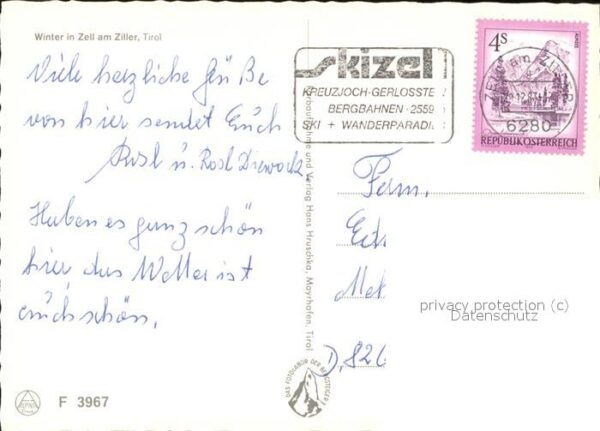 Winter in Zell am Ziller, Tirol
Viele herzliche Grüße
von hier sendet Euch
u. Rosl
Haben es ganz schön
hier das Wetter ist
auch schön.
F 3967
skizel
KREUZJOCH-GERLOSSTE
BERGBAHNEN · 2559
SKI + WANDERPARADI
4S
REPUBLIK ÖSTERREICH
ZELL am ZILLER
6280
Verlag Hans Hruschka, Mayrhofen, Tirol
DAS FOTOLABOR DER BERGSTEIGER
Fam.
D, 826
privacy protection (c)
Datenschutz